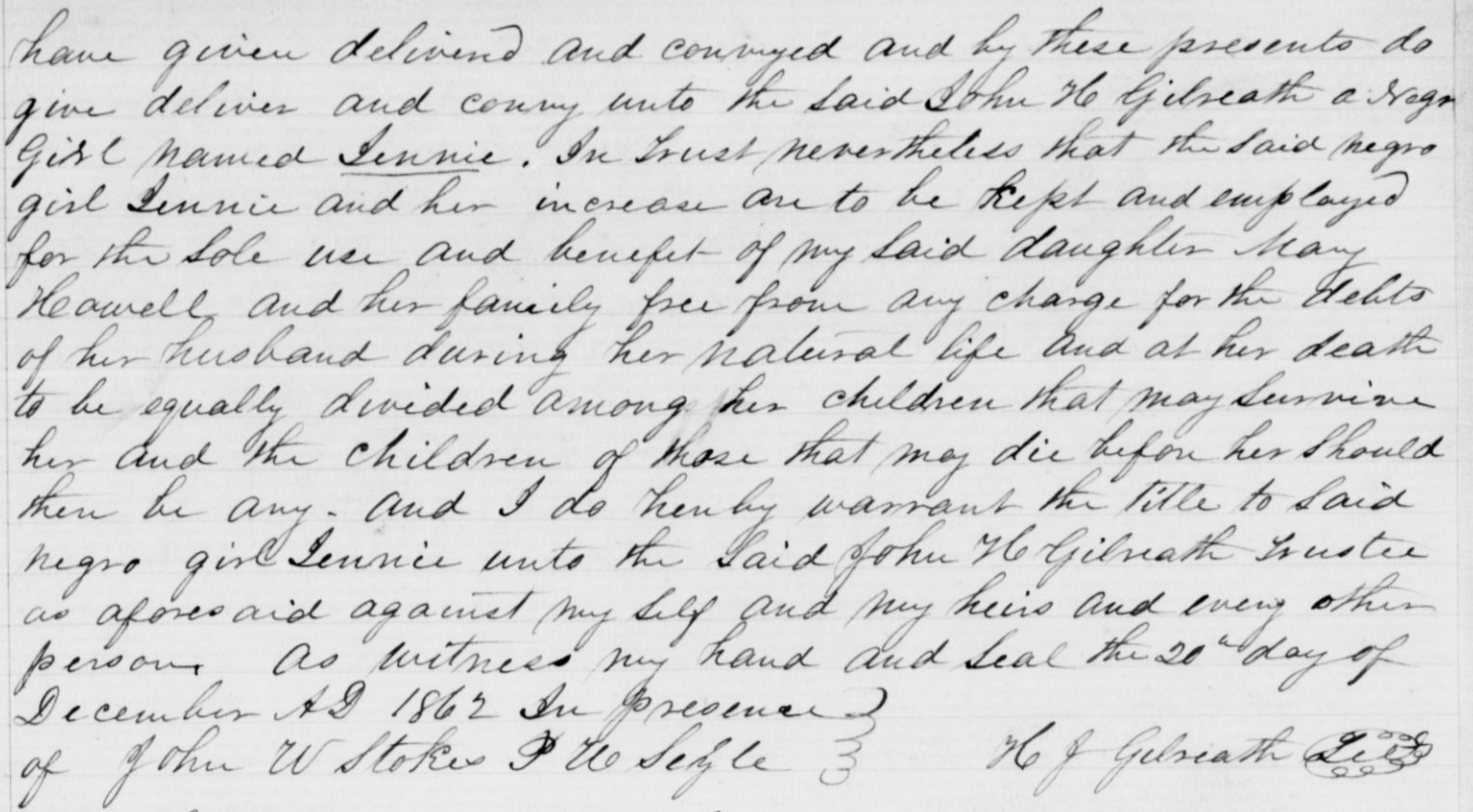 have given delivered and conveyed and by these presents do
give deliver and convey unto the said John H Gilreath a Negro
Girl named Jennie. In Trust nevertheless that the said negro
girl Jennie and her increase are to be kept and employed
for the sole use and benefit of my said daughter Mary
Howell and her family free from any charge for the debts
of her husband during her natural life and at her death
to be equally divided among her children that may survive
her and the children of those that may die before her should
there be any. and I do hereby warrant the title to said
negro girl Jennie unto the said John H Gilreath Trustee
as aforesaid against my self and my heirs and every other
person. As witness my hand and seal the 20th day of
December AD 1862 In presence
of John W Stokes P H Seyle H J Gilreath